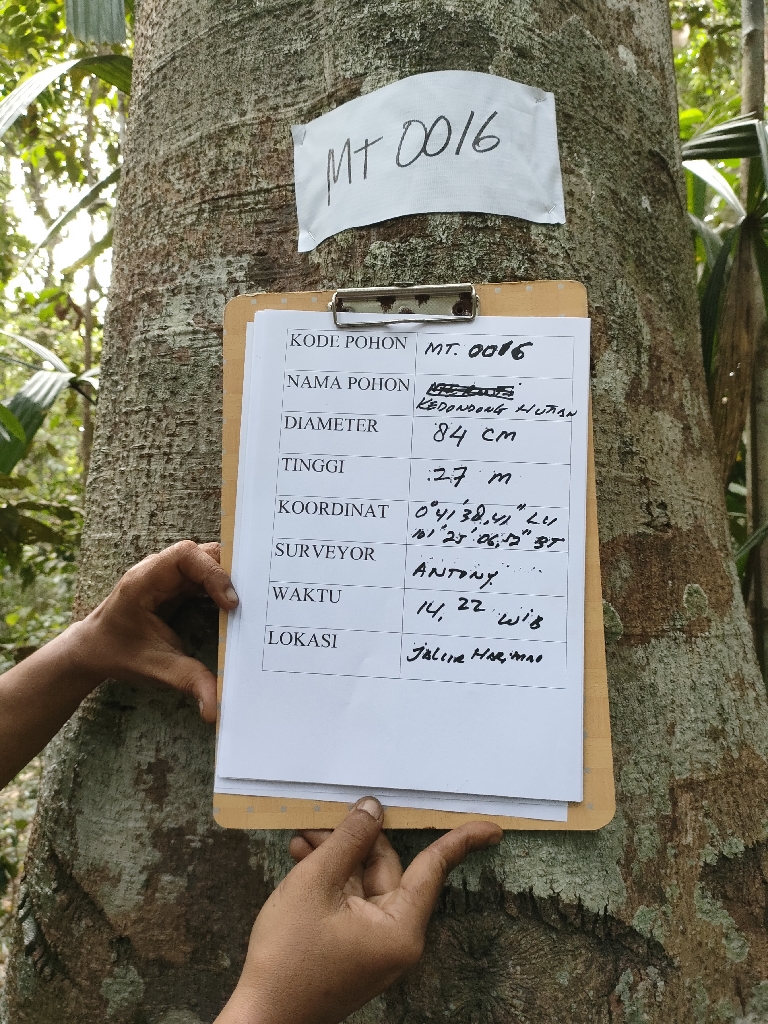 MT 0016
KODE POHON MT. 0016
NAMA POHON
KEDONDONG HUTAN
DIAMETER 84 CM
TINGGI 27 m
KOORDINAT 0°41'38,41" LU
101°25'06,52" BT
SURVEYOR ANTONY
WAKTU 14,22 WIB
LOKASI JALUR HARIMAO